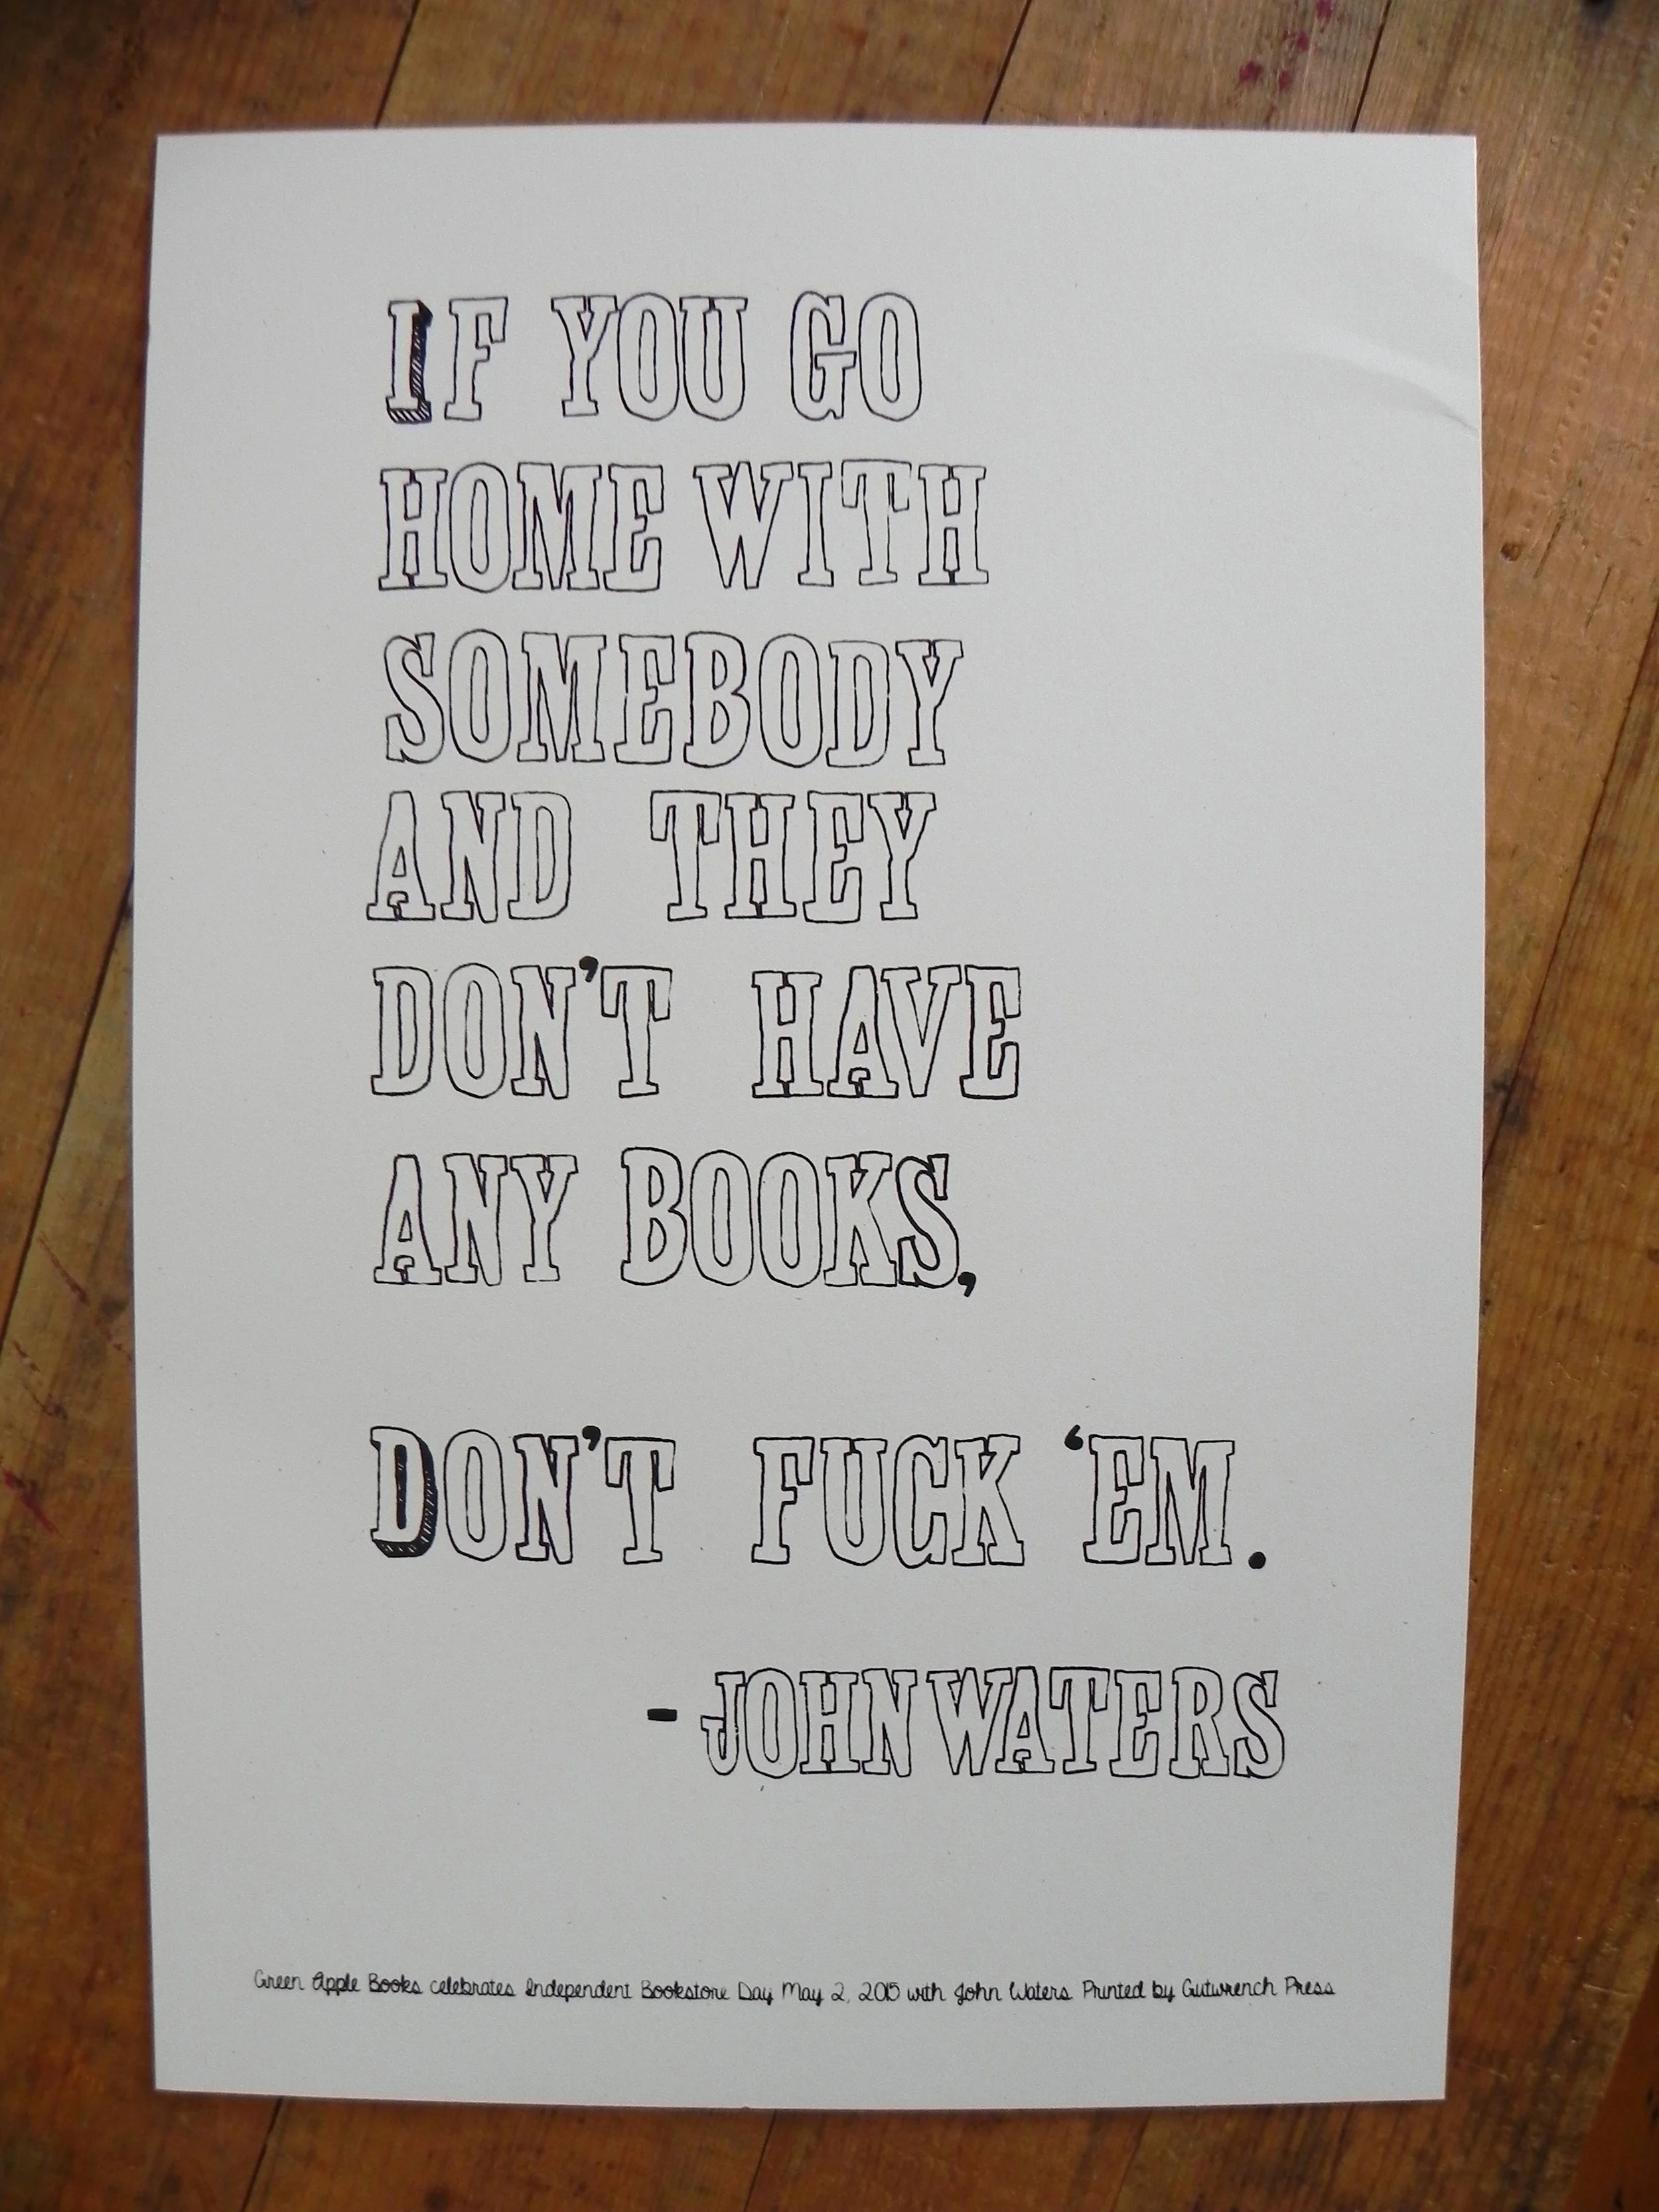 IF YOU GO
HOME WITH
SOMEBODY
AND THEY
DON'T HAVE
ANY BOOKS,
DON'T FUCK 'EM.
- JOHN WATERS
Green Apple Books celebrates Independent Bookstore Day May 2, 2015 with John Waters Printed by Gutwrench Press